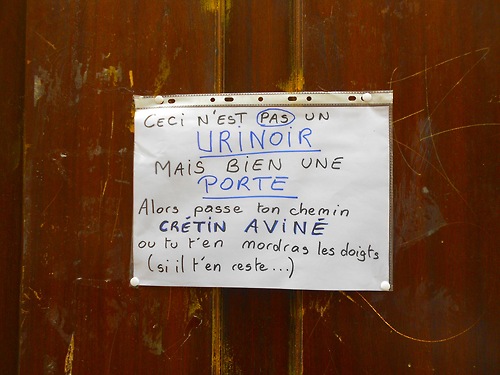 CECI N'EST PAS UN
URINOIR
MAIS BIEN UNE
PORTE
Alors passe ton chemin
CRÉTIN AVINÉ
ou tu t'en mordras les doigts
(si il t'en reste...)